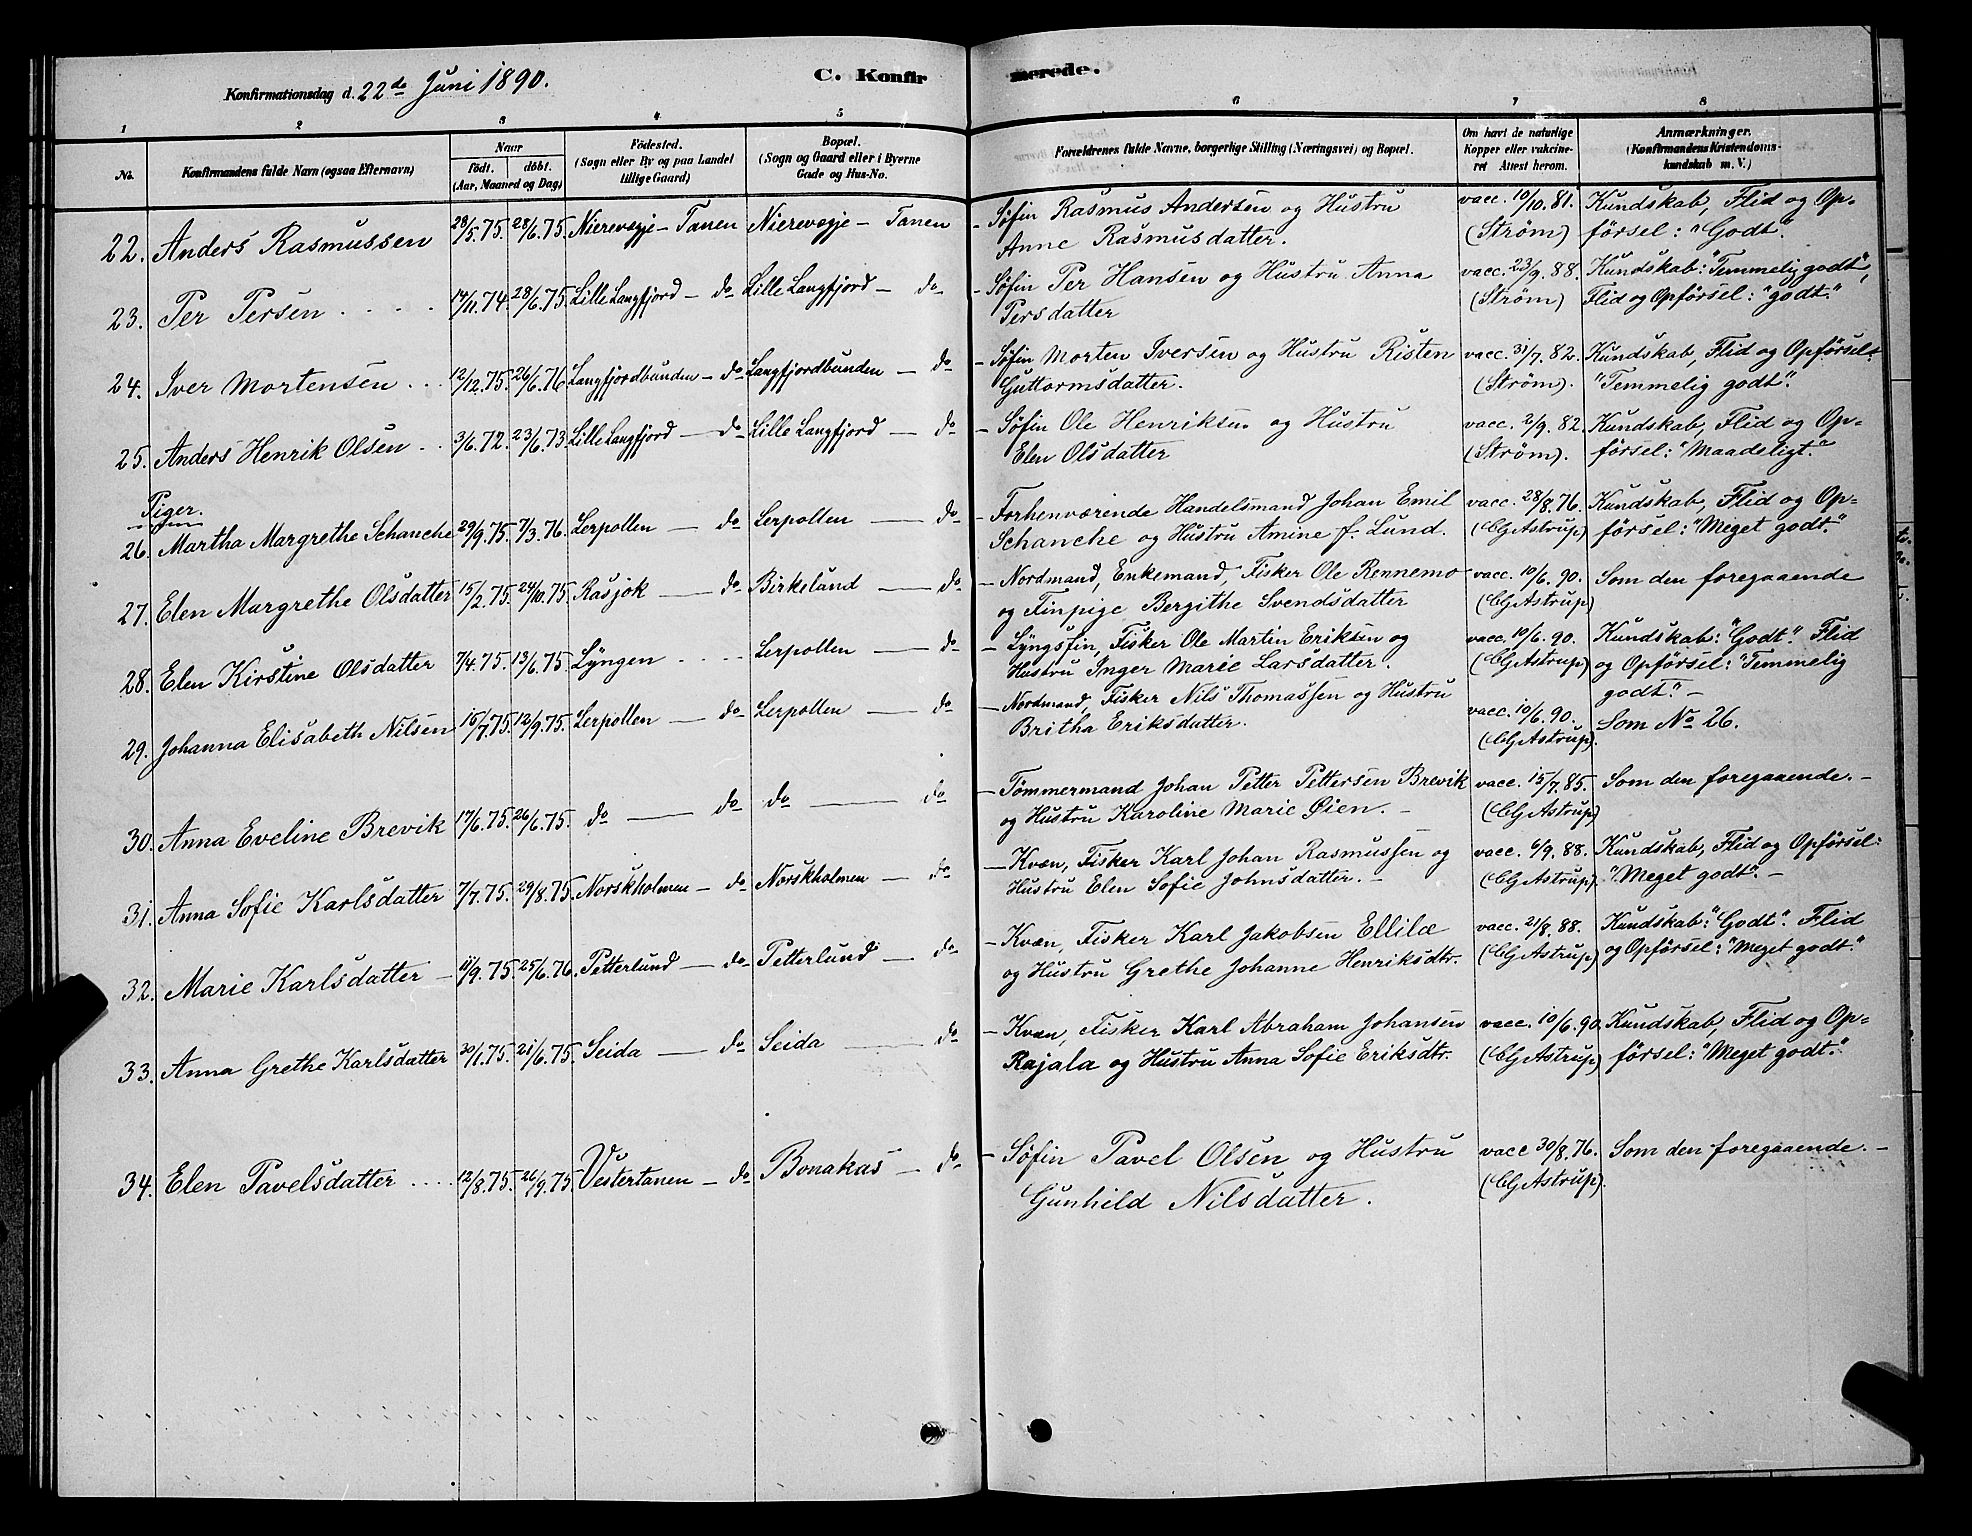 Konfirmationsdag d. 22de Juni 1890.
C. Konfirmerede.
1 2 3 4 5 6 7 8
No.
Konfirmandens fulde Navn (ogsaa Efternavn)
Naar
födt. döbt.
(Aar, Maaned og Dag)
Födested.
(Sogn eller By og paa Landet
tillige Gaard)
Bopæl.
(Sogn og Gaard eller i Byerne
Gade og Hus-No.
Forældrenes fulde Navne, borgerlige Stilling (Næringsvei) og Bopæl.
Om havt de naturlige
Kopper eller vakcine-
ret Attest herom.
Anmærkninger.
(Konfirmandens Kristendoms-
kundskab m. V.)
22. Anders Rasmussen 28/5.75. 28/6.75. Nierevegje - Tanen Nierevegje - Tanen
- Søfin Rasmus Andersen og Hustru
Anne Rasmusdatter.
vacc. 10/10.81.
(Ström)
Kundskab, Flid og Op-
försel: "Godt".
23. Per Persen 14/11.74. 28/6.75. Lille Langfjord - do Lille Langfjord - do
- Søfin Per Hansen og Hustru Anna
Persdatter
vacc. 23/9.88.
(Ström)
Kundskab: "Temmelig godt",
Flid og Opförsel: "godt."
24. Iver Mortensen 12/12.75. 26/6.76 Langfjordbunden - do Langfjordbunden - do
- Søfin Morten Iversen og Hustru Risten
Guttormsdatter.
vacc. 31/7.82.
(Ström).
Kundskab, Flid og Opförsel:
"Temmelig godt".
25. Anders Henrik Olsen 3/6.72. 23/6.73 Lille Langfjord - do Lille Langfjord - do
- Søfin Ole Henriksen og Hustru
Elen Olsdatter
vacc. 2/9.82.
(Ström).
Kundskab, Flid og Op-
försel: "Maadeligt."
Piger.
26. Martha Margrethe Schanche 29/9.75. 7/3.76. Lerpollen - do Lerpollen - do
- Forhenværende Handelsmand Johan Emil
Schanche og Hustru Amine f. Lund.
vacc. 28/8.76.
(CG Astrup)
Kundskab, Flid og Op-
försel: "Meget godt."
27. Elen Margrethe Olsdatter 15/2.75. 24/10.75. Rasjok - do Birkeland - do
- Nordmand, Enkemand, Fisker Ole Rennemo
og Finpige Bergithe Svendsdatter
vacc. 10/6.90.
(CG Astrup)
Som den foregaaende
28. Elen Kirstine Olsdatter 7/4.75. 13/6.75 Lyngen Lerpollen - do
- Lyngsfin, Fisker Ole Martin Eriksen og
Hustru Inger Marie Larsdatter.
vacc. 10/6.90.
(CG Astrup)
Kundskab: "Godt". Flid
og Opförsel: "Temmelig
godt." -
29. Johanna Elisabeth Nilsen 15/7.75. 12/9.75. Lerpollen - do Lerpollen - do
- Nordmand, Fisker Nils Thomassen og Hustru
Britha Eriksdatter.
vacc. 10/6.90.
(CG Astrup).
Som No 26.
30. Anna Eveline Brevik 17/6.75. 26/6.75. do - do do - do
- Tömmermand Johan Petter Pettersen Brevik
og Hustru Karoline Marie Øien. -
vacc. 15/7.85.
(CG Astrup)
Som den foregaaende. -
31. Anna Sofie Karlsdatter 7/7.75. 29/8.75. Norskholmen - do Norskholmen - do
- Kvæn, Fisker Karl Johan Rasmussen og
Hustru Elen Sofie Johnsdatter. -
vacc. 6/9.88.
(CG Astrup).
Kundskab, Flid og Opförsel:
"Meget godt". -
32. Marie Karlsdatter - 11/9.75. 25/6.76. Petterlund - do Petterlund - do
- Kvæn, Fisker Karl Jakobsen Ellilæ
og Hustru Grethe Johanne Henriksdtr.
vacc. 21/8.88.
(CG Astrup)
Kundskab: "Godt". Flid
og Opförsel: "Meget godt."
33. Anna Grethe Karlsdatter 30/1.75. 21/6.75 Seida - do Seida - do
- Kvæn, Fisker Karl Abraham Johansen
Rajala og Hustru Anna Sofie Eriksdtr.
vacc. 10/6.90.
(CG Astrup)
Kundskab, Flid og Op-
försel: "Meget godt."
34. Elen Pavelsdatter 12/8.75. 26/9.75. Vestertanen - do Bonakas - do
- Søfin Pavel Olsen og Hustru
Gunhild Nilsdatter.
vacc 30/8.76.
(CG Astrup).
Som den foregaaende. -